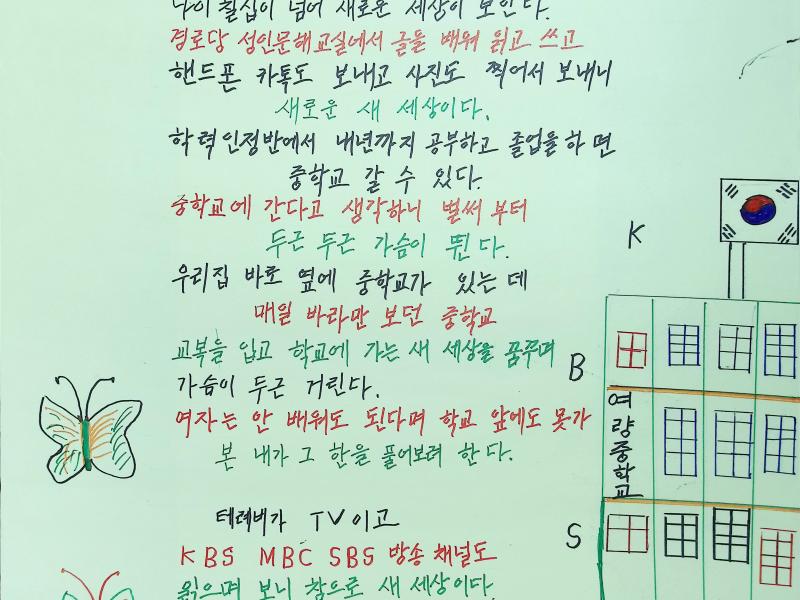 나이 칠십이 넘어 새로운 세상이 보인다.
경로당 성인문해교실에서 글을 배워 읽고 쓰고
핸드폰 카톡도 보내고 사진도 찍어서 보내니
새로운 새 세상이다.
학력인정반에서 내년까지 공부하고 졸업을 하면
중학교 갈 수 있다.
중학교에 간다고 생각하니 벌써 부터
두근 두근 가슴이 뛴다.
우리집 바로 옆에 중학교가 있는 데
매일 바라만 보던 중학교
교복을 입고 학교에 가는 새 세상을 꿈꾸며
가슴이 두근 거린다.
여자는 안 배워도 된다며 학교 앞에도 못가
본 내가 그 한을 풀어보려 한다.
테레비가 TV이고
KBS MBC SBS 방송 채널도
읽으며 보니 참으로 새 세상이다.
K
B
S
여량중학교